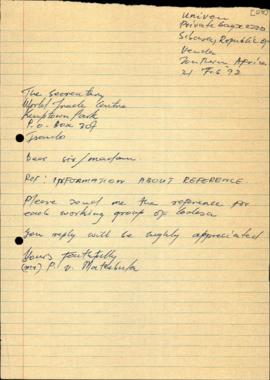 Univen
Private Bag X2220
Sibasa, Republic of
Venda
Southern Africa
21 Feb 92
The Secretary
World Trade Centre
Kempton Park
P.O. Box 307
Isando
Dear Sir/madam
Ref: INFORMATION ABOUT REFERENCE
Please send me the reference for
each working group of Codesa
You reply will be highly appreciated
Yours faithfully
(mr) P. V. Mathebula